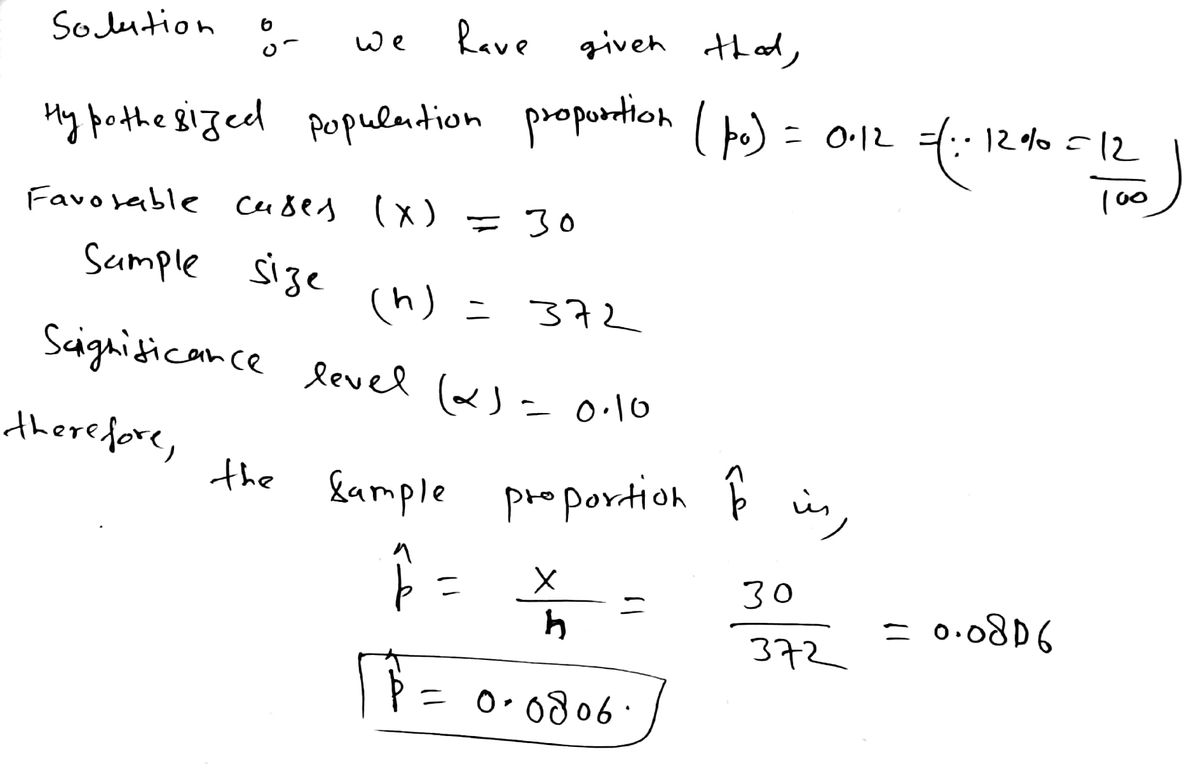 Solution :- we have given that,
Hypothesized population proportion (p₀) = 0.12 = (∵ 12% = 12/100)
Favorable cases (x) = 30
Sample size (n) = 372
Significance level (α) = 0.10
therefore,
the sample proportion p̂ is,
p̂ = x/n = 30/372 = 0.0806
p̂ = 0.0806.